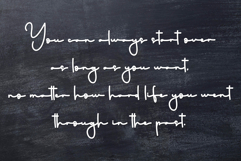 You can always start over
as long as you want,
no matter how hard life you went
through in the past.